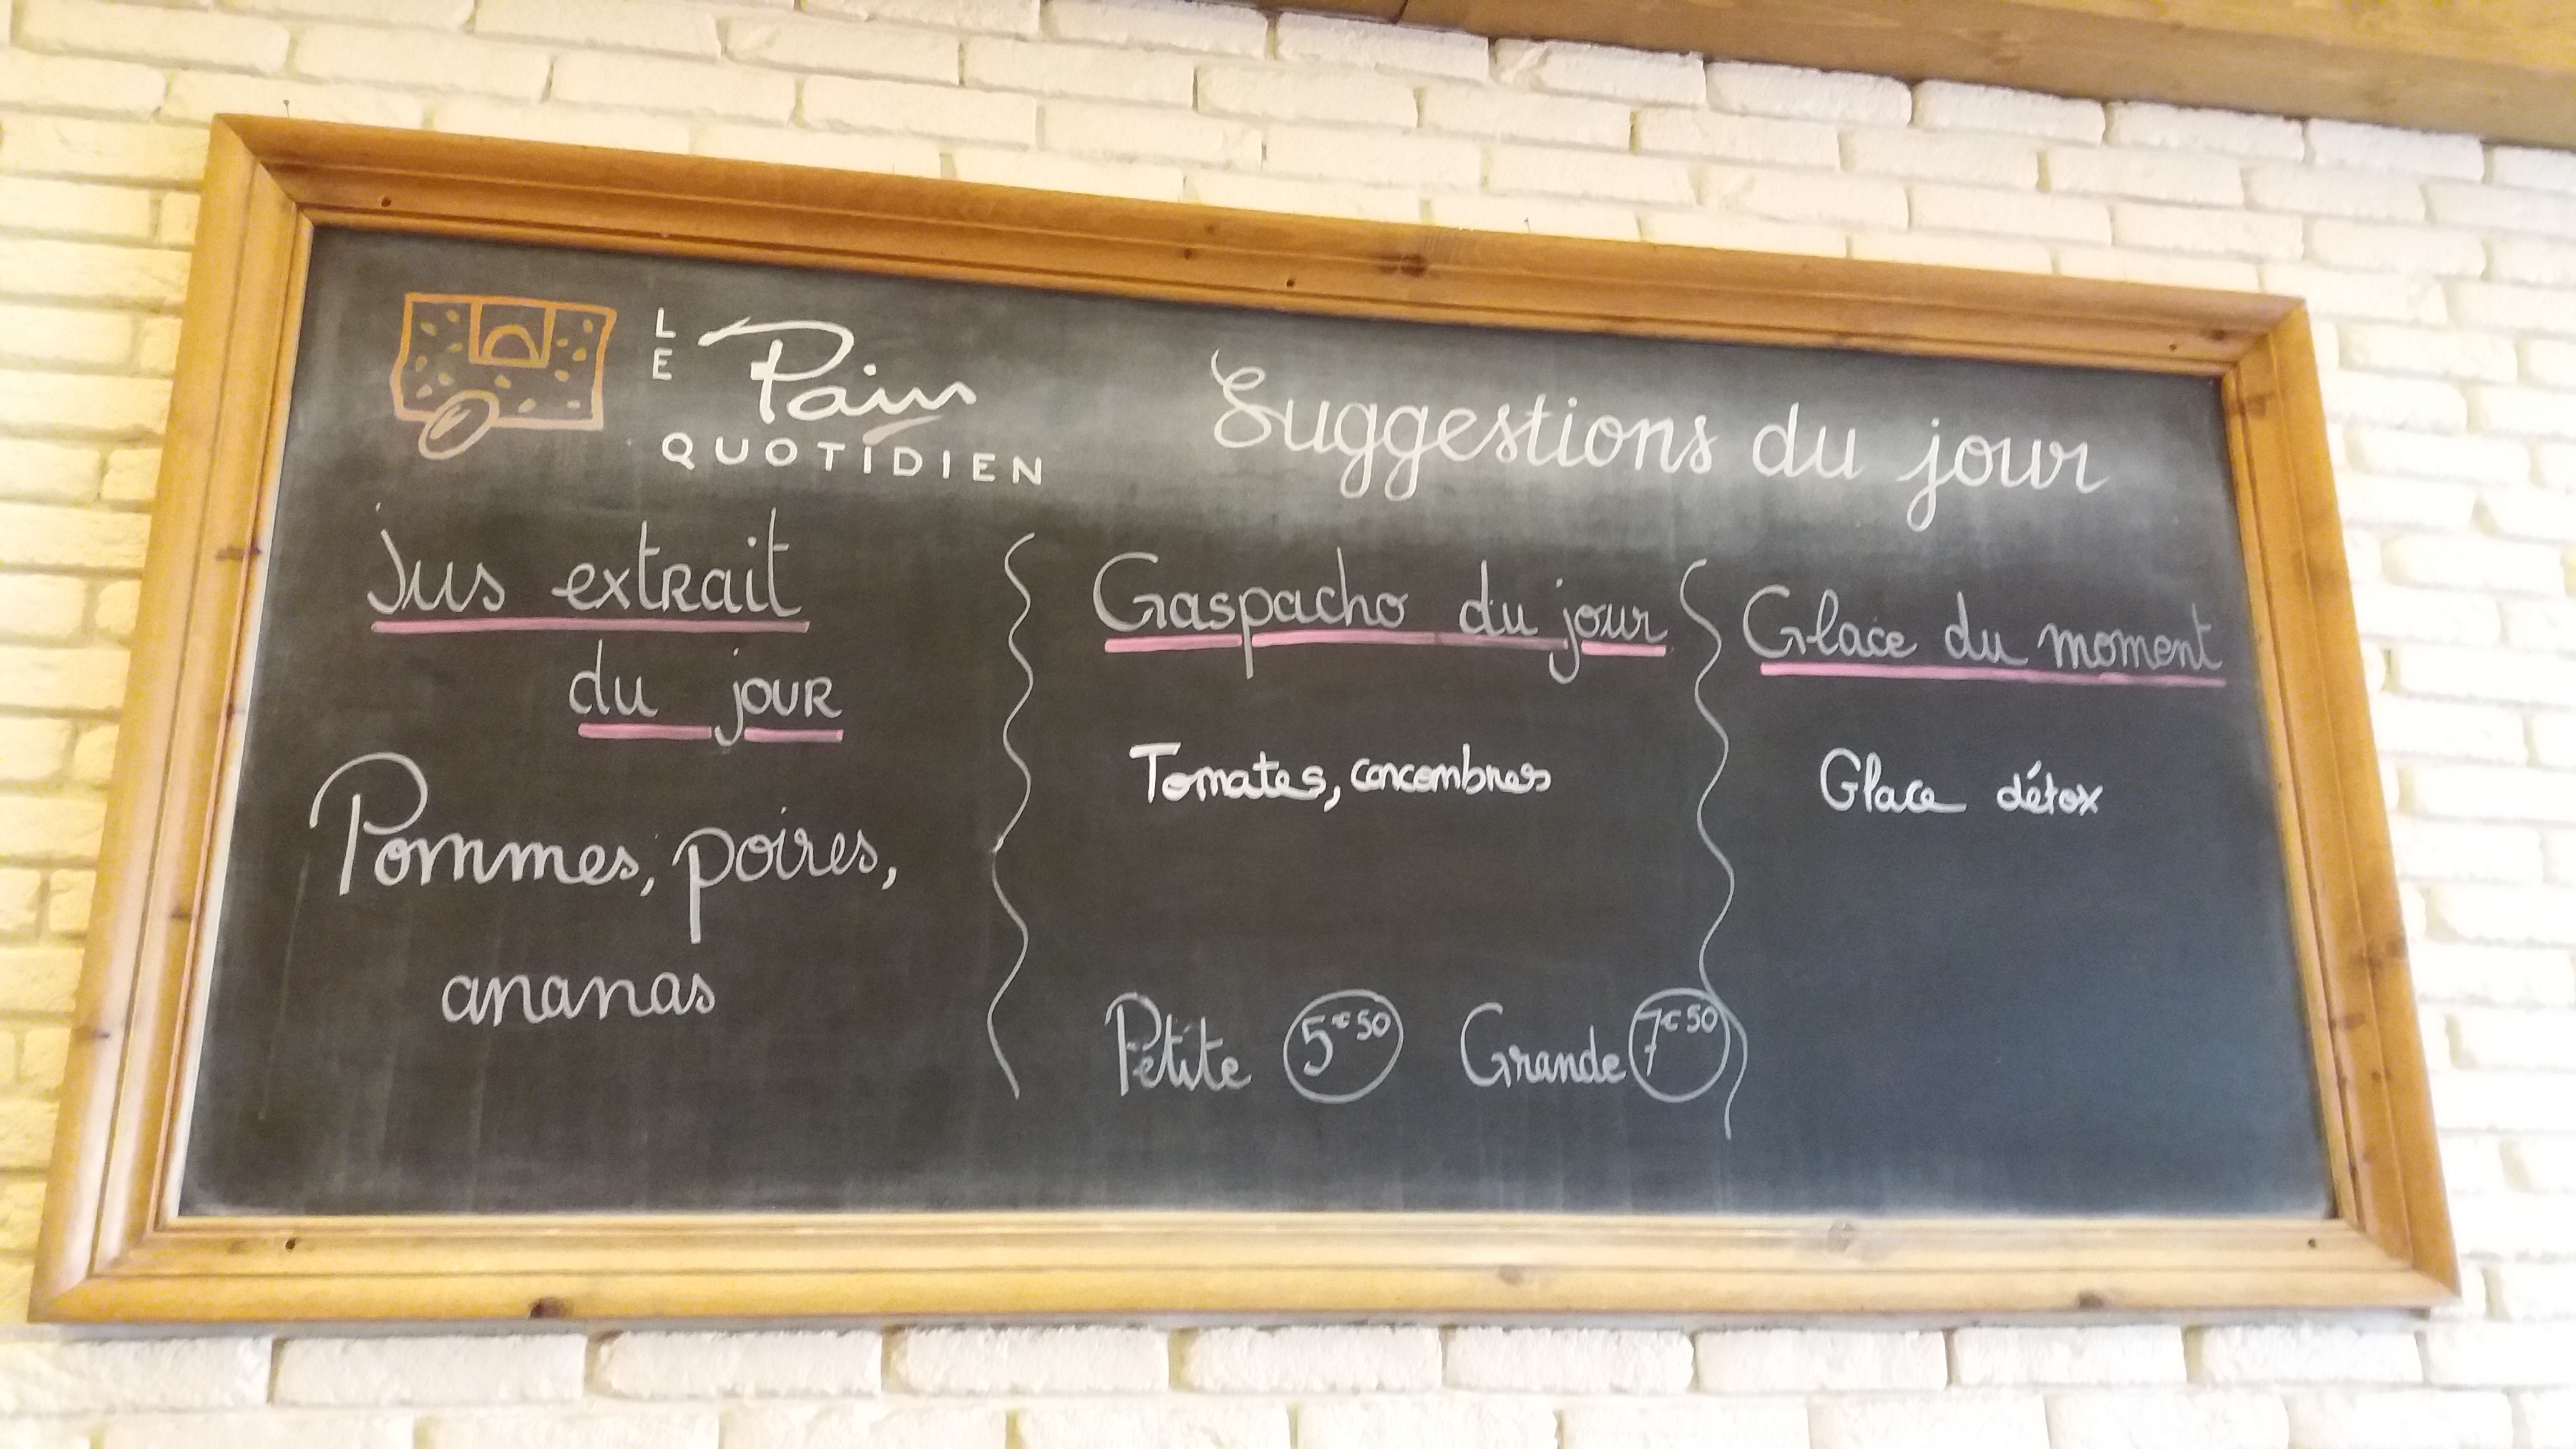 LE Pain
QUOTIDIEN
Suggestions du jour
Jus extrait
du jour
Pommes, poires,
ananas
Gaspacho du jour
Tomates, concombres
Petite 5€50 Grande 7€50
Glace du moment
Glace détox